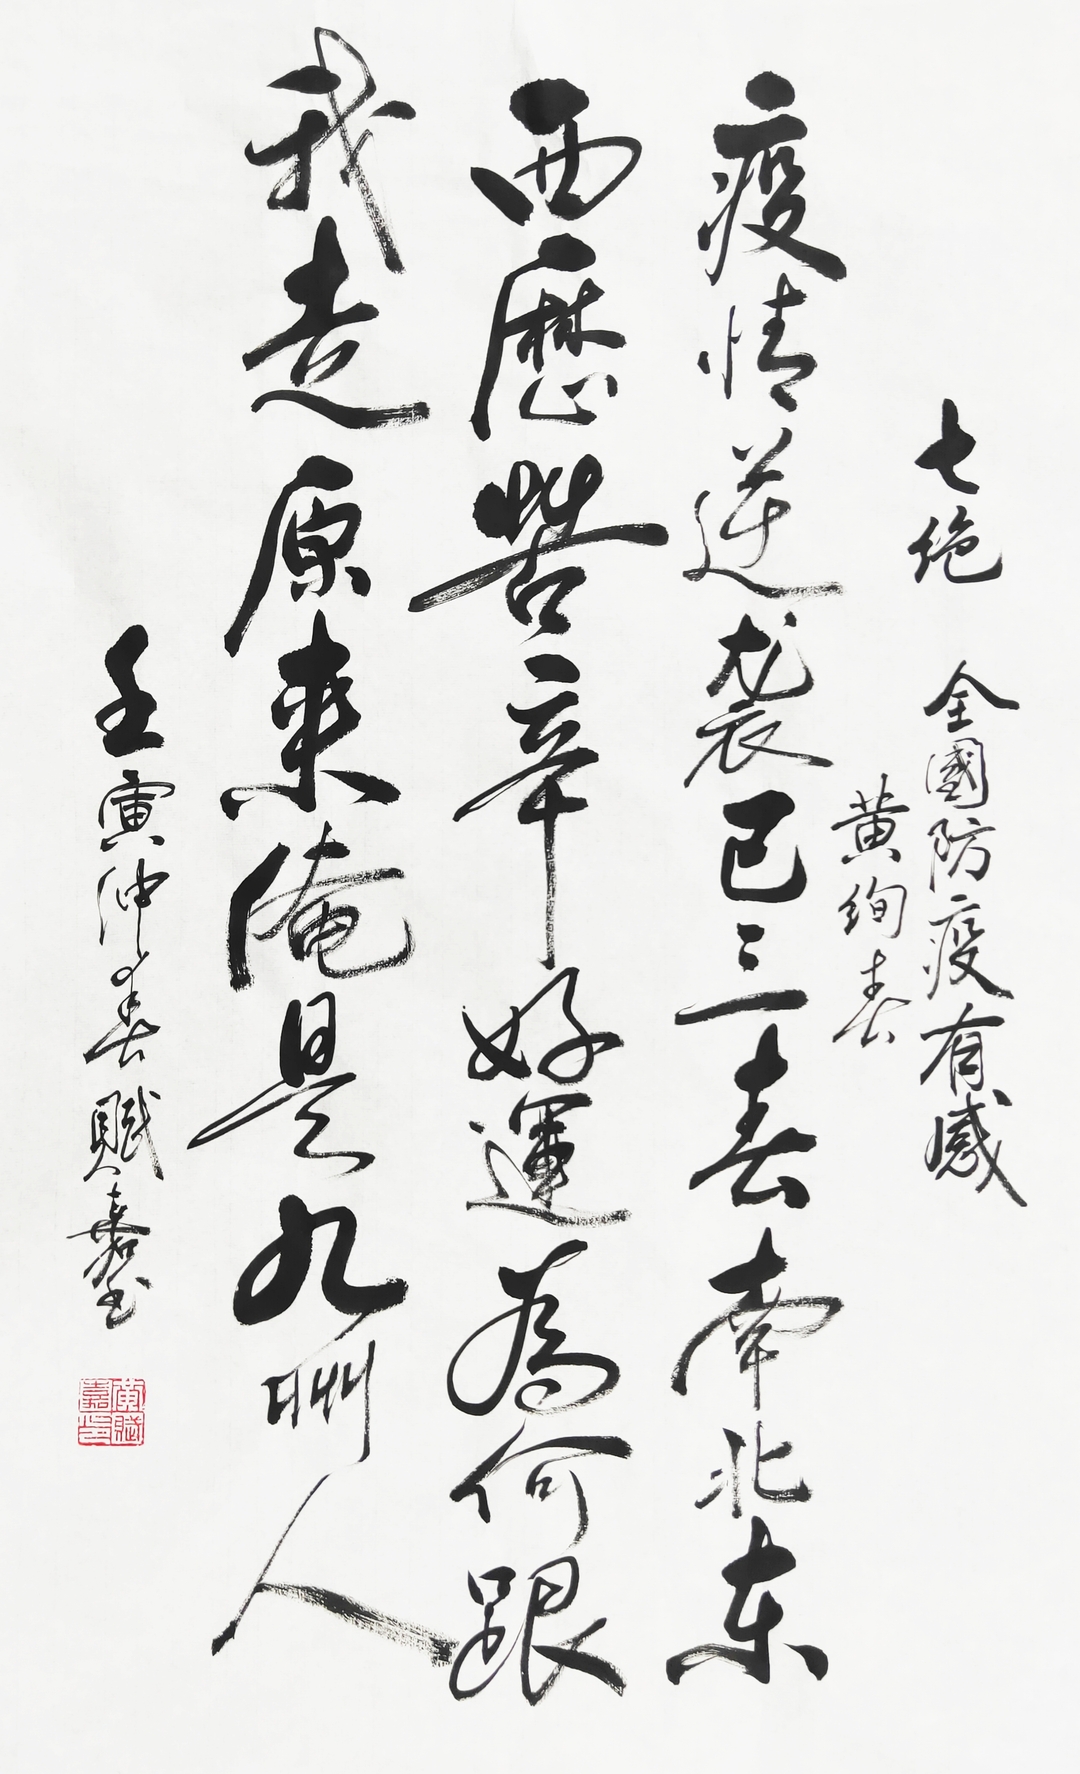 七绝 全國防疫有感
黄絢春
疫情逆袭已三春南北东
西歷苦辛好運為何跟
我走原来俺是九州人
壬寅仲春赋嘉书
黄赋嘉印